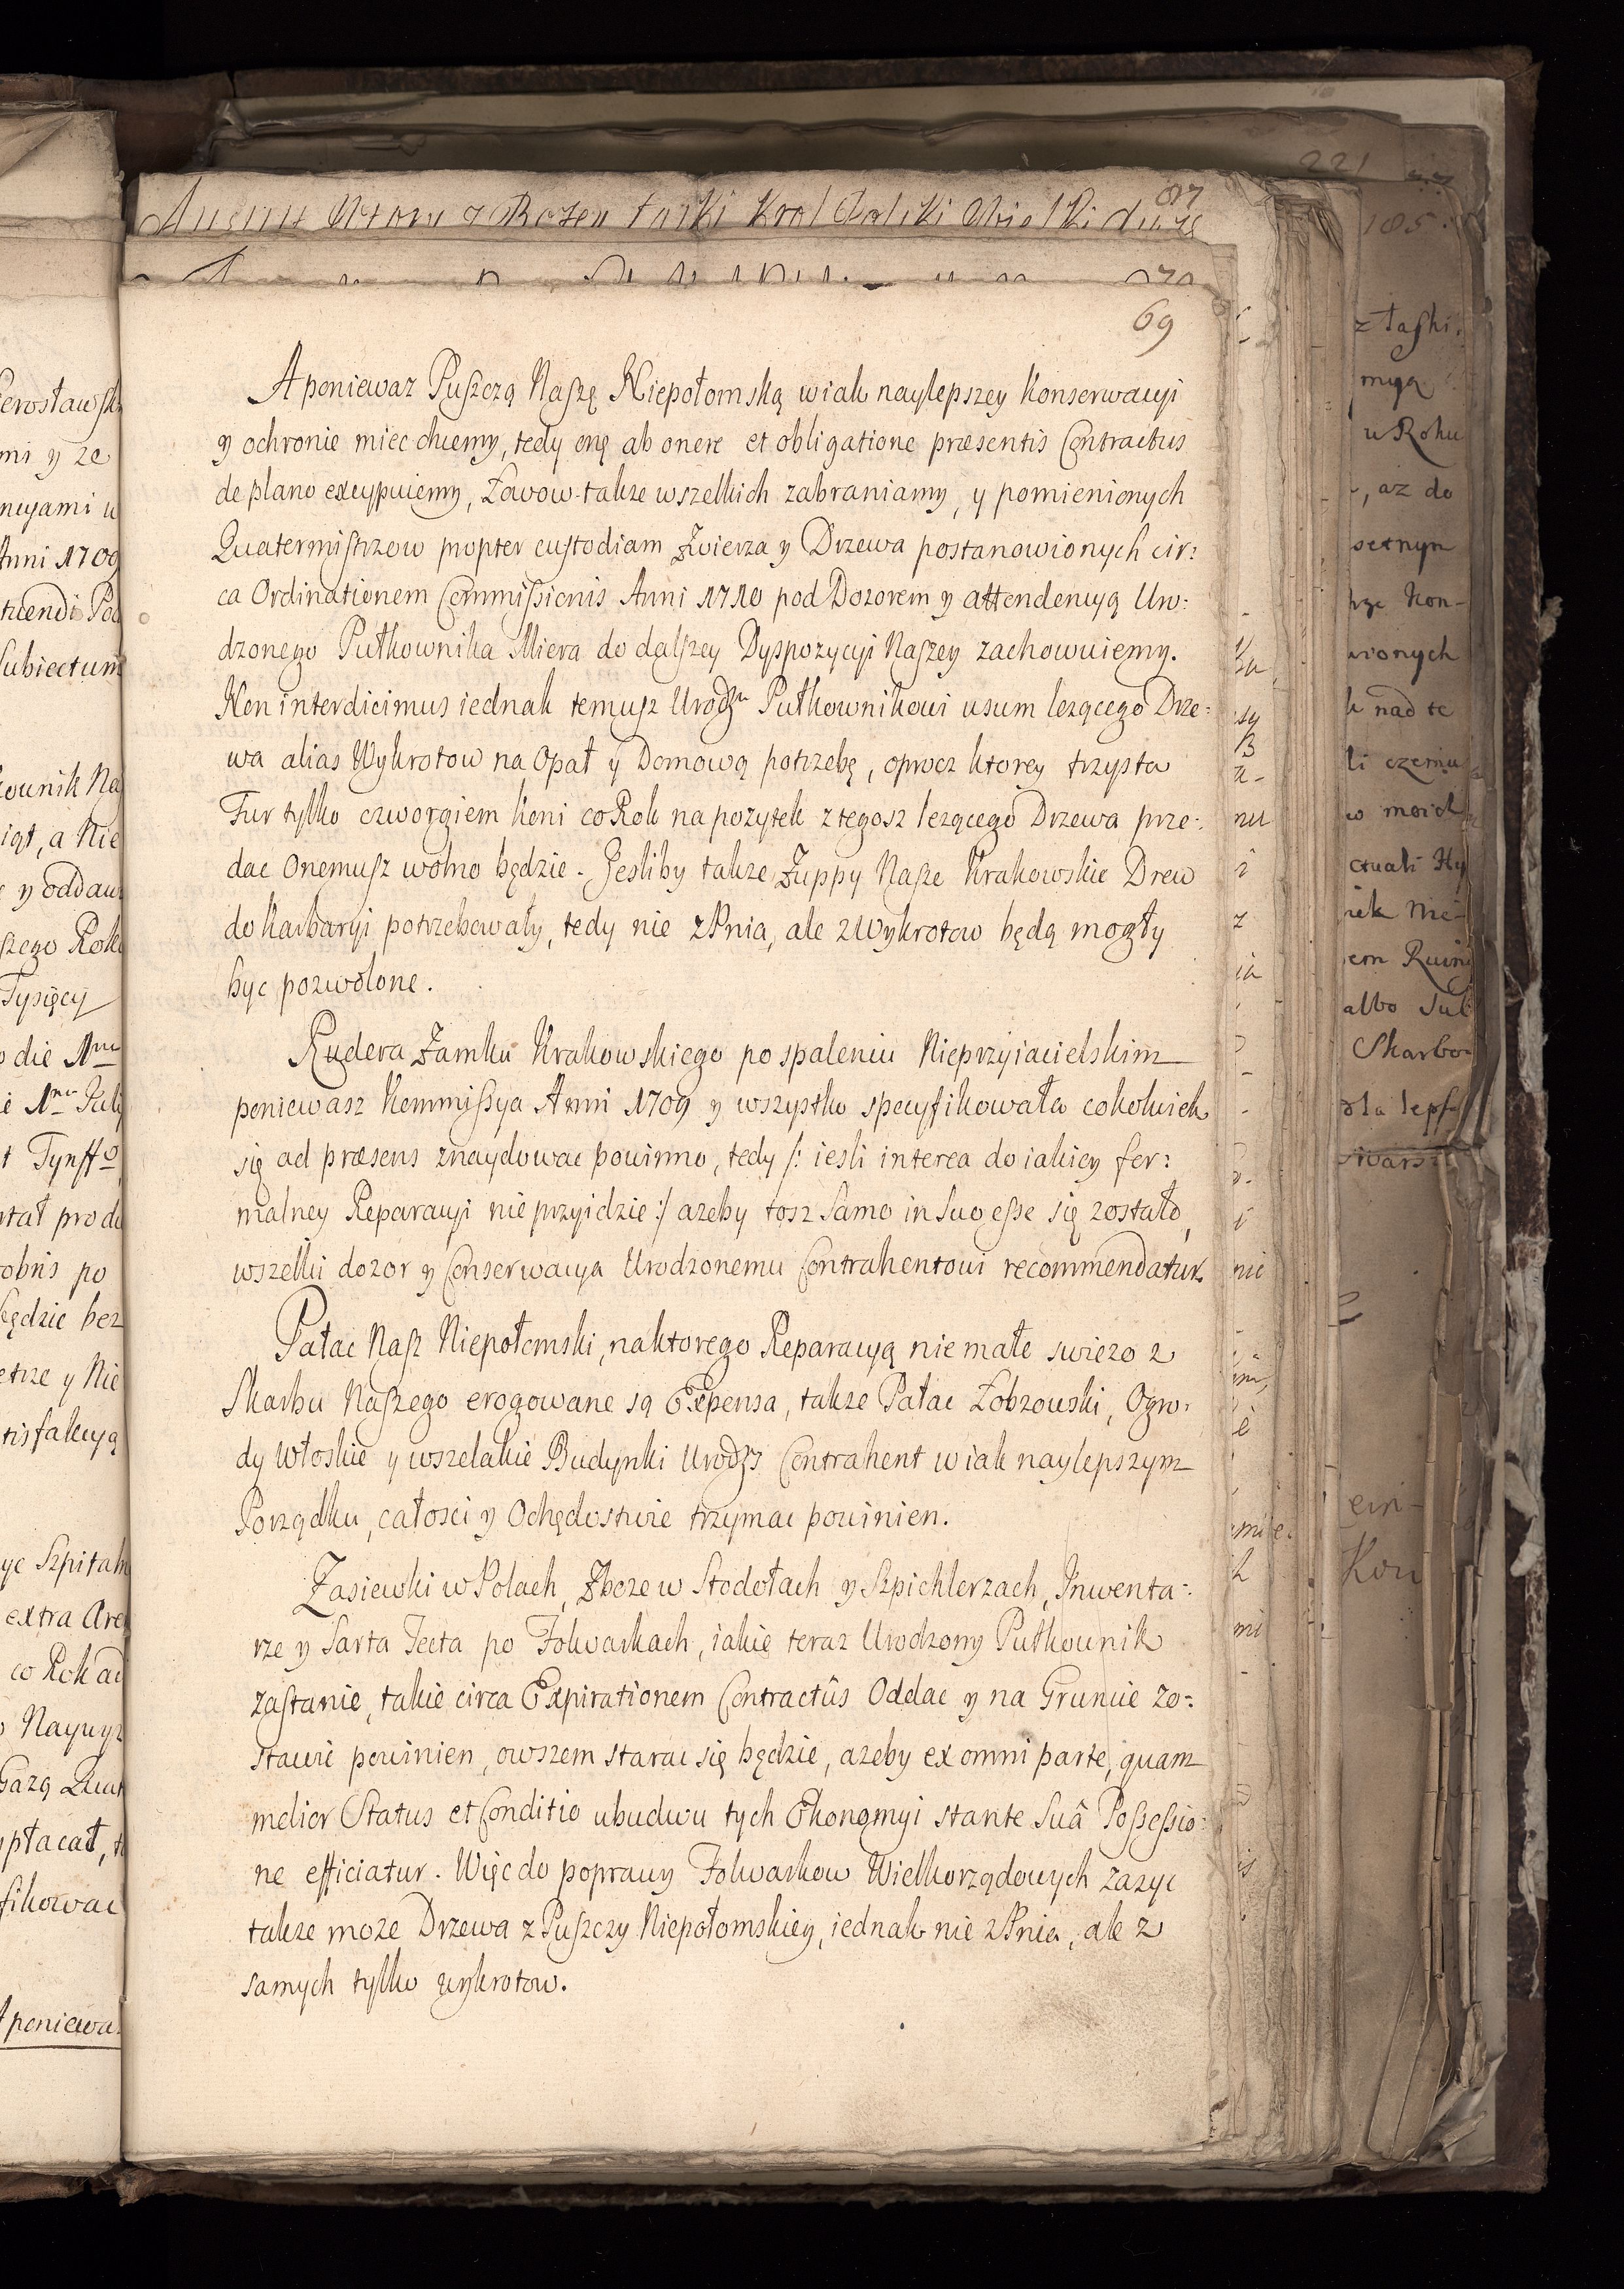 69
A poniewaz Puszczą Naszę Niepołomską wiak naylepszey Konserwacyi
y ochronie miec chcemy, tedy onę ab onere et obligatione præsentis Contractus
de plano excypuiemy, Łowow takze wszelkich zabraniamy, y pomienionych
Quatermistrzow propter custodiam Zwierza y Drzewa postanowionych cir:
ca Ordinationem Commissionis Anni 1710 pod Dozorem y attendencyą Uro:
dzonego Pułkownika Miera do dalszey Dyspozycyi Naszey zachowuiemy.
Non interdicimus iednak temusz Urodz. Pułkownikowi usum lezącego Drze:
wa alias Wykrotow na Opał y Domową potrzebę, oprocz ktorey trzysta
Fur tylko czworgiem koni co Rok na pozytek z tegosz lezącego Drzewa prze:
dac Onemusz wolno będzie. Jesliby takze Zuppy Nasze Krakowskie Drew
do Karbaryi potrzebowały, tedy nie z Pnia, ale z Wykrotow będą mogły
byc pozwolone.
Rudera Zamku Krakowskiego po spaleniu Nieprzyiacielskim
poniewasz Kommissya Anni 1709 y wszystko specyfikowała cokolwiek
się ad præsens znaydowac powinno, tedy /: iesli interea do iakiey for:
malney Reparacyi nie przyidzie :/ azeby tosz samo in suo esse się zostało,
wszelki dozor y Conserwacya Urodzonemu Contrahentowi recommendatur.
Pałac Nasz Niepołomski, na ktorego Reparacyą nie małe swiezo z
Skarbu Naszego erogowane są Expensa, takze Pałac Łobzowski, Ogro:
dy Włoskie y wszelakie Budynki Urodz. Contrahent w iak naylepszym
Porządku, całosci y Ochędostwie trzymac powinien.
Zasiewki w Polach, Zboze w Stodołach y Szpichlerzach, Inwenta:
rze y Sarta Tecta po Folwarkach, iakie teraz Urodzony Pułkownik
zastanie, takie circa Expirationem Contractûs Oddac y na Gruncie zo:
stawic powinien, owszem starac się będzie, azeby ex omni parte, quam
melior Status et Conditio ubudwu tych Ekonomyi stante suâ Possessio:
ne efficiatur. Więc do poprawy Folwarkow Wielkorządowych zazyc
takze moze Drzewa z Puszczy Niepołomskiey, iednak nie z Pnia, ale z
samych tylko wykrotow.